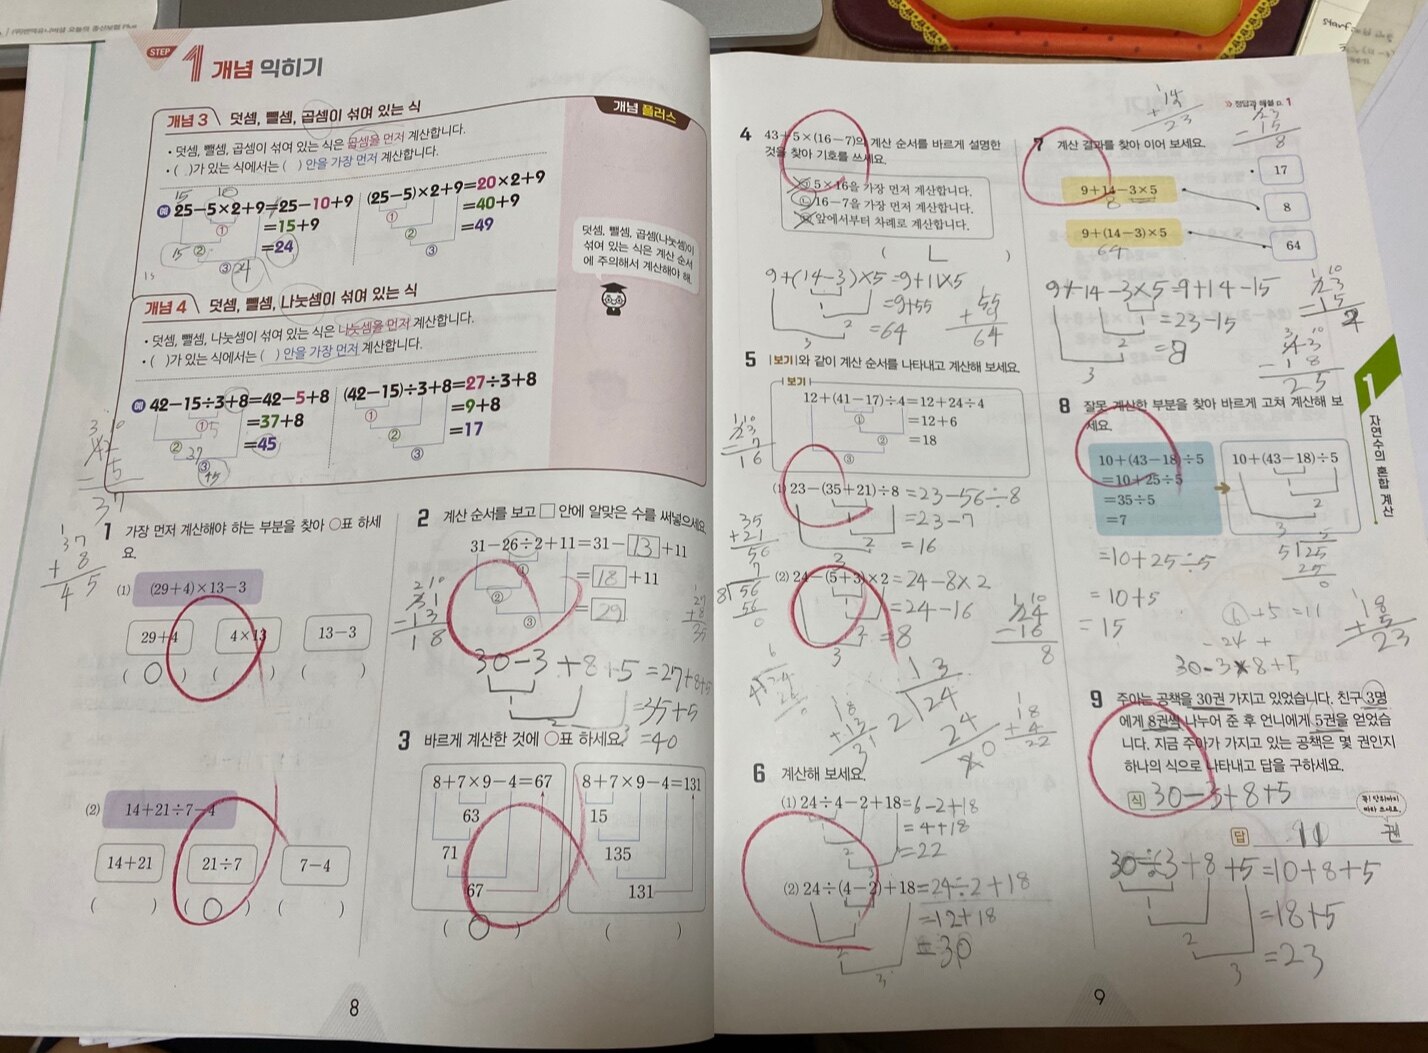 STEP 1 개념 익히기
개념 3 덧셈, 뺄셈, 곱셈이 섞여 있는 식
• 덧셈, 뺄셈, 곱셈이 섞여 있는 식은 곱셈을 먼저 계산합니다.
• ( )가 있는 식에서는 ( ) 안을 가장 먼저 계산합니다.
15 10
예 25−5×2+9=25−10+9
=15+9
=24
① ② ③
15 24
(25−5)×2+9=20×2+9
=40+9
=49
① ② ③
개념 4 덧셈, 뺄셈, 나눗셈이 섞여 있는 식
• 덧셈, 뺄셈, 나눗셈이 섞여 있는 식은 나눗셈을 먼저 계산합니다.
• ( )가 있는 식에서는 ( ) 안을 가장 먼저 계산합니다.
예 42−15÷3+8=42−5+8
=37+8
=45
① 5
② 37
③ 45
(42−15)÷3+8=27÷3+8
=9+8
=17
① ② ③
개념 플러스
덧셈, 뺄셈, 곱셈(나눗셈)이
섞여 있는 식은 계산 순서
에 주의해서 계산해야 해.
37
+ 8
45
1 가장 먼저 계산해야 하는 부분을 찾아 ○표 하세
요.
(1) (29+4)×13−3
29+4 4×13 13−3
( ○ ) ( ) ( )
(2) 14+21÷7−4
14+21 21÷7 7−4
( ) ( ○ ) ( )
2 계산 순서를 보고 □ 안에 알맞은 수를 써넣으세요.
31−26÷2+11=31−13+11
=18+11
=29
① ② ③
31
−13
18
27
+8
35
30−3+8+5=27+8+5
=35+5
=40
3 바르게 계산한 것에 ○표 하세요.
8+7×9−4=67
63
71
67
( ○ )
8+7×9−4=131
15
135
131
( )
8
4 43+5×(16−7)의 계산 순서를 바르게 설명한
것을 찾아 기호를 쓰세요.
㉠ 5×16을 가장 먼저 계산합니다.
㉡ 16−7을 가장 먼저 계산합니다.
㉢ 앞에서부터 차례로 계산합니다.
( ㄴ )
9+(14−3)×5=9+11×5
=9+55
=64
1 2 3
55
+ 9
64
5 |보기|와 같이 계산 순서를 나타내고 계산해 보세요.
보기
12+(41−17)÷4=12+24÷4
=12+6
=18
① ② ③
(1) 23−(35+21)÷8=23−56÷8
=23−7
=16
23
−7
16
35
+21
56
7
8 56
56
0
(2) 24−(5+3)×2=24−8×2
=24−16
=8
24
−16
8
18
+13
31
18
+4
22
6 계산해 보세요.
(1) 24÷4−2+18=6−2+18
=4+18
=22
(2) 24÷(4−2)+18=24÷2+18
=12+18
=30
» 정답과 해설 p. 1
14
+
23
23
−15
8
7 계산 결과를 찾아 이어 보세요.
9+14−3×5
9+(14−3)×5
64
17
8
64
9+14−3×5=9+14−15
=23−15
=8
1 2 3
43
−18
25
8 잘못 계산한 부분을 찾아 바르게 고쳐 계산해 보
세요.
10+(43−18)÷5
=10+25÷5
=35÷5
=7
10+(43−18)÷5
=10+25÷5
=10+5
=15
5
5 25
25
0
6+5=11
−24+
30−3×8+5
18
+5
23
9 주아는 공책을 30권 가지고 있었습니다. 친구 3명
에게 8권씩 나누어 준 후 언니에게 5권을 얻었습
니다. 지금 주아가 가지고 있는 공책은 몇 권인지
하나의 식으로 나타내고 답을 구하세요.
식 30−3+8+5
꼭! 단위까지
따라 쓰세요.
답 11 권
30÷3+8+5=10+8+5
=18+5
=23
1 2 3
1 자연수의 혼합 계산
9